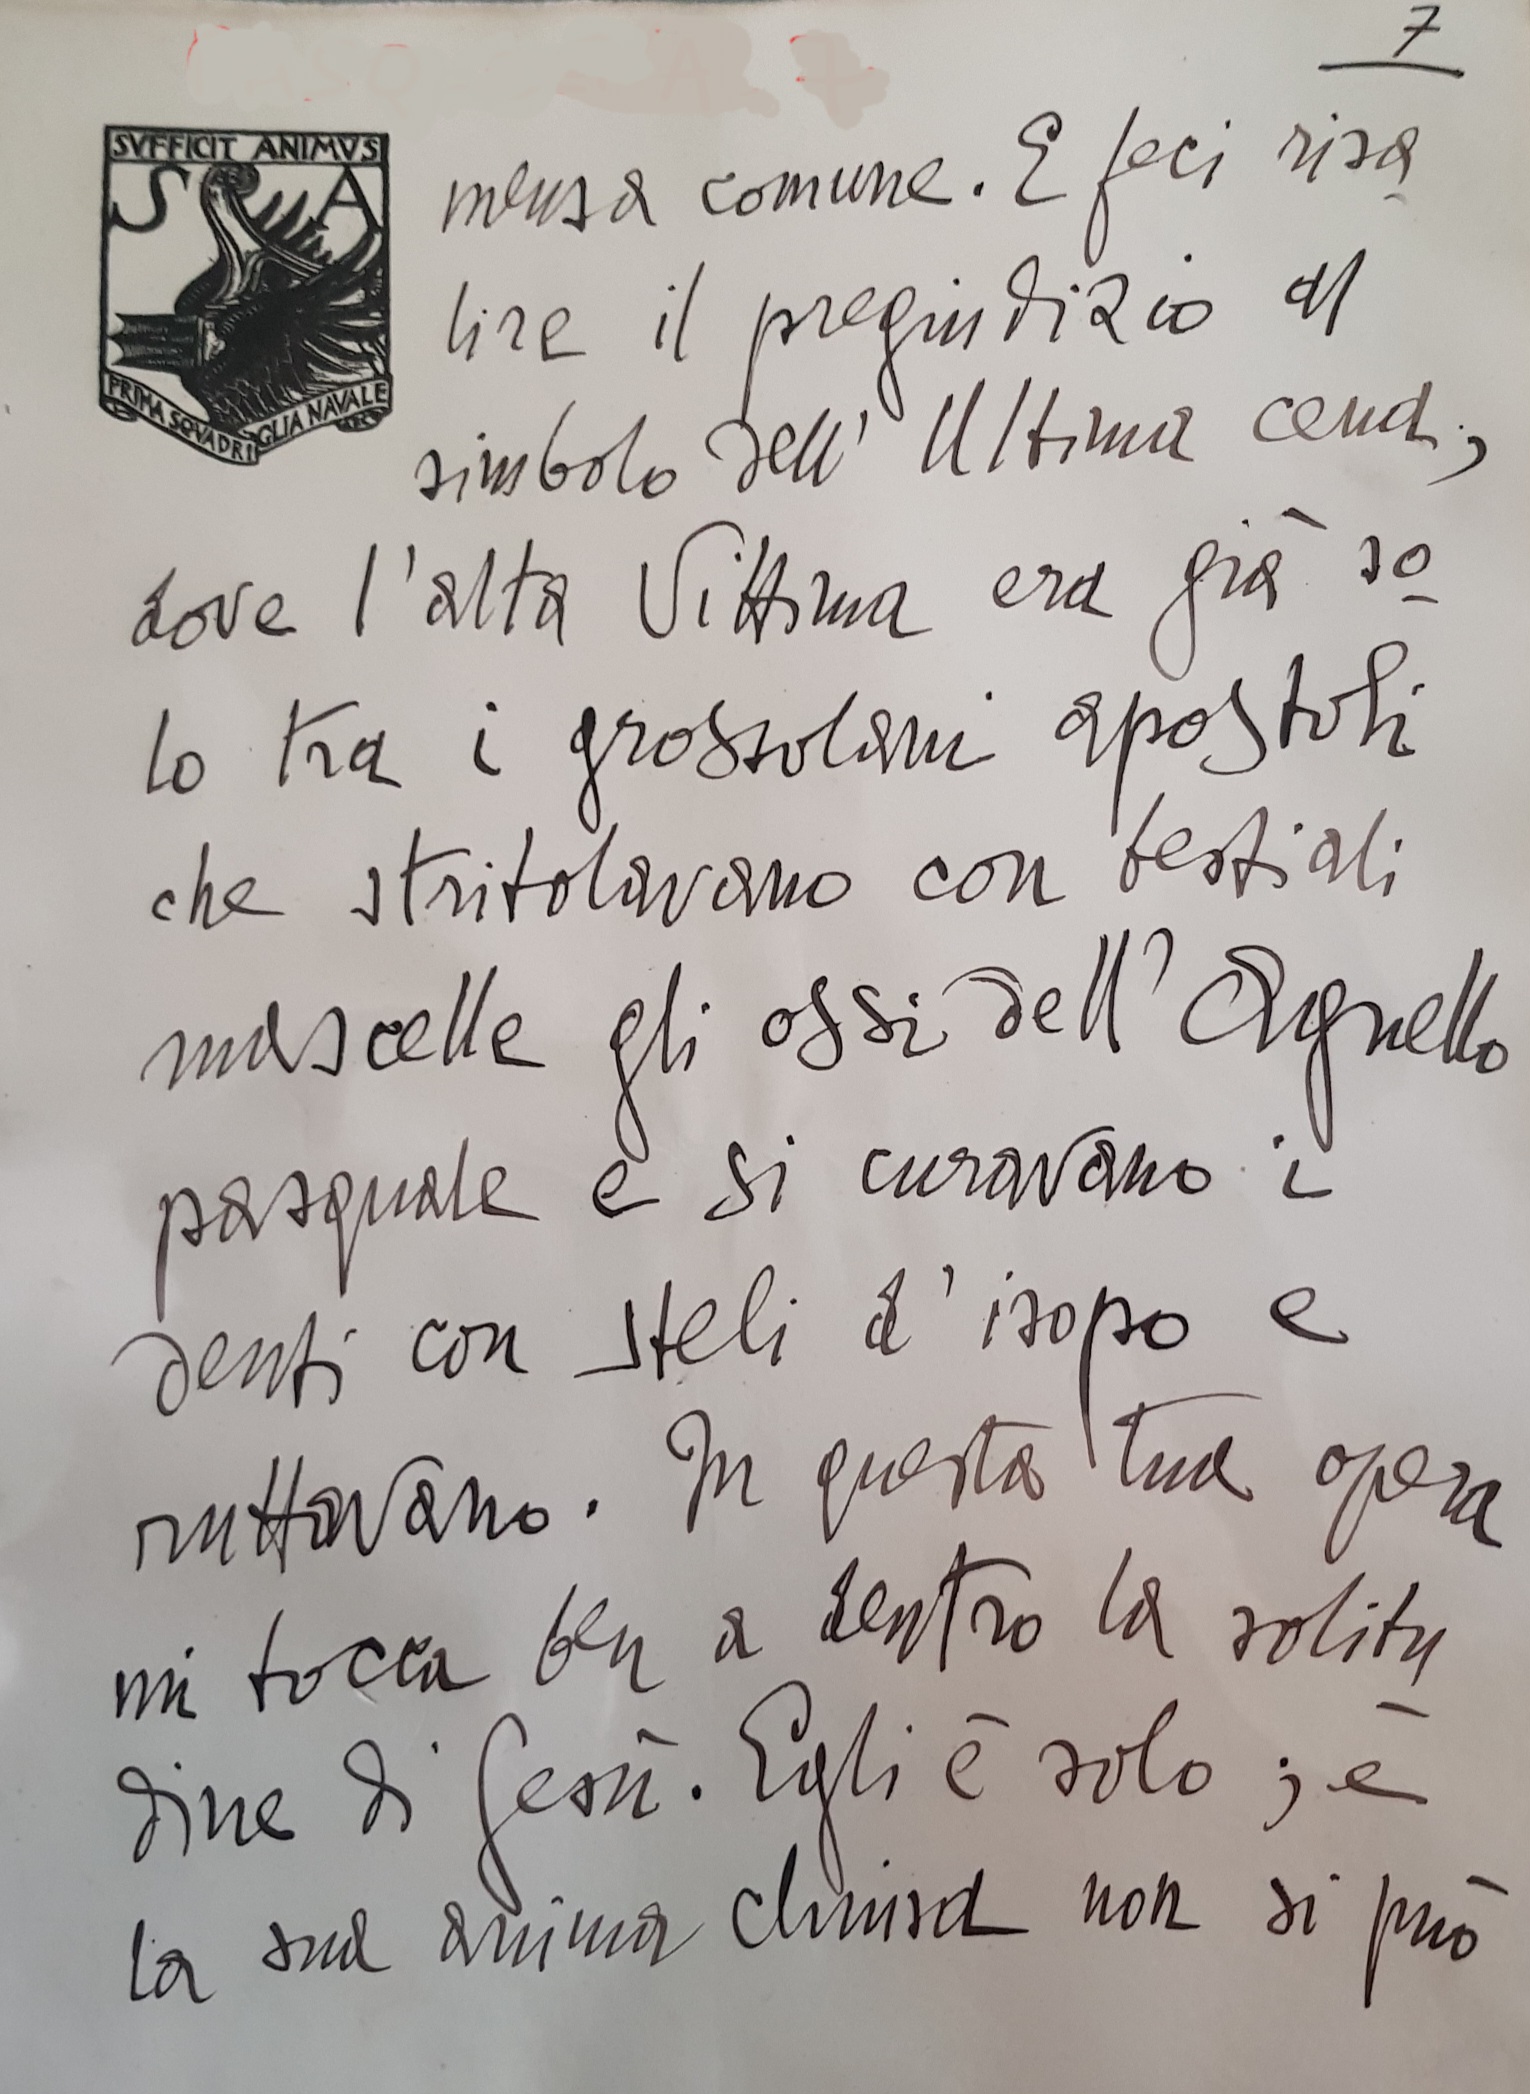 7
SVFFICIT ANIMVS
S A
PRIMA SQVADRIGLIA NAVALE
mensa comune. E feci risa
lire il pregiudizio al
simbolo dell'Ultima cena;
dove l'alta Vittima era già so
lo tra i grossolani apostoli
che stritolavano con bestiali
mascelle gli ossi dell'Agnello
pasquale e si curavano i
denti con steli d'isopo e
ruttavano. In questa tua opera
mi tocca ben a dentro la solitu
dine di Gesù. Egli è solo; è
la sua anima chiusa non si può